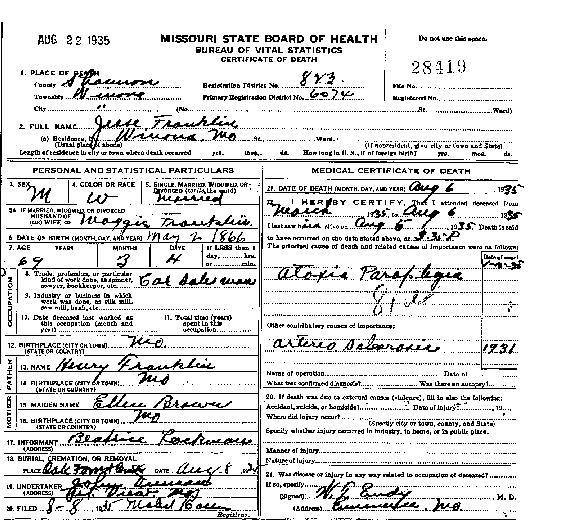 AUG 22 1935
MISSOURI STATE BOARD OF HEALTH
BUREAU OF VITAL STATISTICS
CERTIFICATE OF DEATH
Do not use this space.
28419
1. PLACE OF DEATH
County Shannon Registration District No. 823 File No.
Township Winona Primary Registration District No. 6074 Registered No.
City " (No. St. Ward)
2. FULL NAME Jesse Franklin
(a) Residence. Winona, Mo St. Ward.
(Usual place of abode) (If nonresident, give city or town and State)
Length of residence in city or town where death occurred yrs. mos. ds. How long in U.S., if of foreign birth? yrs. mos. ds.
PERSONAL AND STATISTICAL PARTICULARS
3. SEX M
4. COLOR OR RACE W
5. SINGLE, MARRIED, WIDOWED OR DIVORCED (write the word) Married
5A. IF MARRIED, WIDOWED OR DIVORCED
HUSBAND OF
(OR) WIFE OF Maggie Franklin
6. DATE OF BIRTH (MONTH, DAY, AND YEAR) May 2 1866
7. AGE YEARS 69 MONTHS 3 DAYS 4 If LESS than 1 day, hrs. or min.
OCCUPATION
8. Trade, profession, or particular kind of work done, as spinner, sawyer, bookkeeper, etc. Car Salesman
9. Industry or business in which work was done, as silk mill, saw mill, bank, etc.
10. Date deceased last worked at this occupation (month and year)
11. Total time (years) spent in this occupation
12. BIRTHPLACE (CITY OR TOWN) Mo
(STATE OR COUNTRY)
FATHER
13. NAME Henry Franklin
14. BIRTHPLACE (CITY OR TOWN) Mo
(STATE OR COUNTRY)
MOTHER
15. MAIDEN NAME Ellen Brown
16. BIRTHPLACE (CITY OR TOWN) Mo
(STATE OR COUNTRY)
17. INFORMANT Beatrice
(ADDRESS)
18. BURIAL, CREMATION, OR REMOVAL
PLACE DATE Aug 8 19
19. UNDERTAKER John
(ADDRESS) Mo
20. FILED 8-8 19 Mabel
Registrar.
MEDICAL CERTIFICATE OF DEATH
21. DATE OF DEATH (MONTH, DAY, AND YEAR) Aug 6 1935
22. I HEREBY CERTIFY, That I attended deceased from
March 1935, to Aug 6 1935
I last saw h alive on Aug 6 1935 Death is said
to have occurred on the date stated above, at P.
The principal cause of death and related causes of importance were as follows:
Date of onset
Ataxic Paraplegia
Other contributory causes of importance:
Arterio Sclerosis 1931
Name of operation Date of
What test confirmed diagnosis? Was there an autopsy?
23. If death was due to external causes (violence), fill in also the following:
Accident, suicide, or homicide? Date of injury 19
Where did injury occur?
(Specify city or town, county, and State)
Specify whether injury occurred in industry, in home, or in public place.
Manner of injury
Nature of injury
24. Was disease or injury in any way related to occupation of deceased?
If so, specify
(Signed) M. D.
(Address) Eminence, Mo.